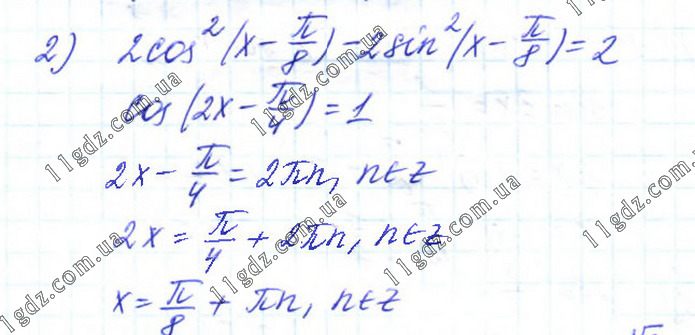 2) 2cos²(x - π/8) - 2sin²(x - π/8) = 2
cos(2x - π/4) = 1
2x - π/4 = 2πn, n∈Z
2x = π/4 + 2πn, n∈Z
x = π/8 + πn, n∈Z
11gdz.com.ua
11gdz.com.ua
11gdz.com.ua
11gdz.com.ua
11gdz.com.ua
11gdz.com.ua